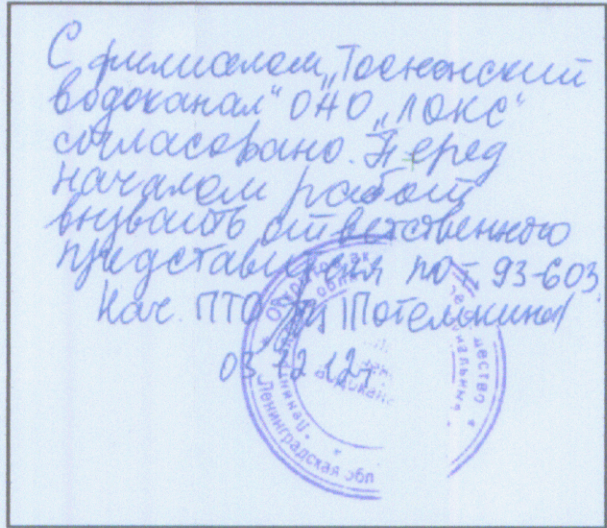 С филиалом „Тосненский
водоканал“ ОАО „ЛОКС“
согласовано. Перед
началом работ
вызвать ответственного
представителя по т. 93-603.
Нач. ПТО /Потемкина/
03.12.12г
Ленинградская обл